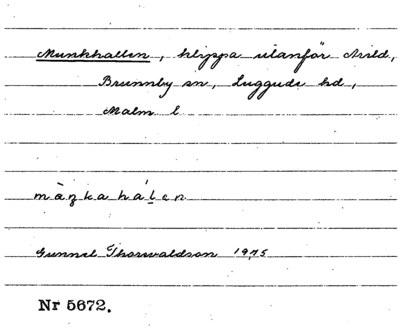 Munkhallen, klippa utanför Arild,
Brunnby sn, Luggude hd,
Malm l
màŋkahálen
Gunnel Thorwaldson 1975
Nr 5672.